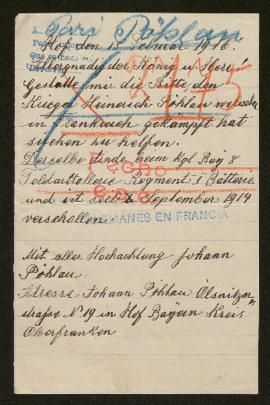 Pari Pöhlan
Hof den 1916.
König u. Herr!
Gestatte mir die Bitte den
Krieger Heinrich Pöhlau welcher
in Frankreich gekämpft hat
suchen zu helfen.
Derselbe diente beim kgl. Bay 8
Feldartillerie Regiment 1 Batterie
und ist seit September 1914
verschollen.
ALEMANES EN FRANCIA
Mit aller Hochachtung Johann
Pöhlau.
Adresse Johann Pöhlau Olsnitzer
strasse No 19 in Hof Bayern Kreis
Oberfranken